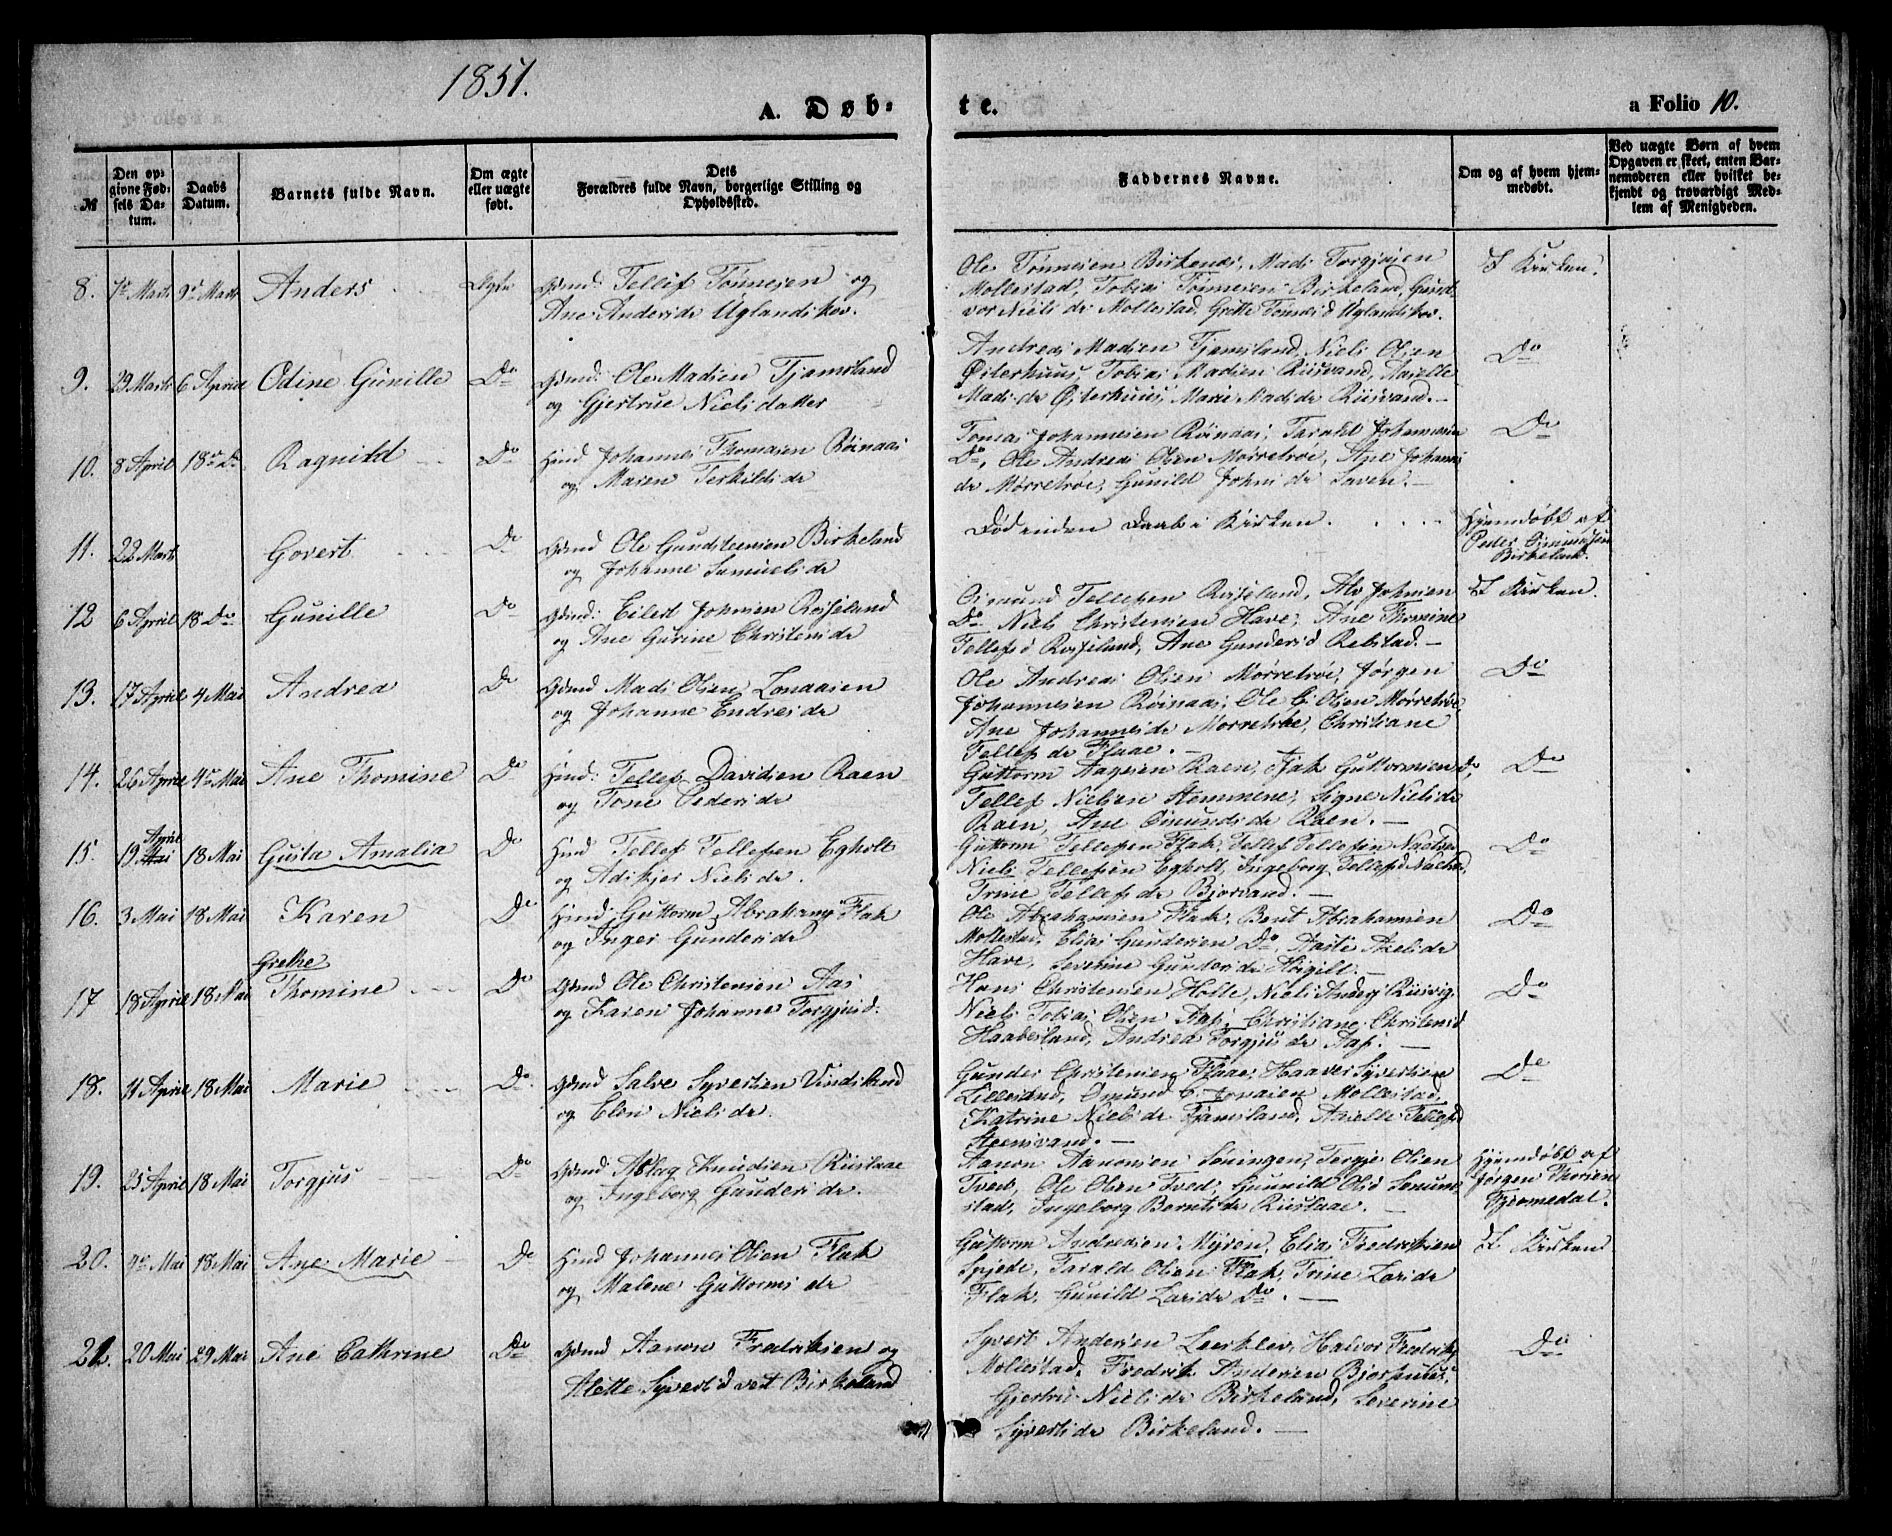 1851.
A. Døb-
te.
a Folio 10.
№
Den op-
givne Fød-
sels Da-
tum.
Daabs
Datum.
Barnets fulde Navn.
Om ægte
eller uægte
født.
Dets
Forældres fulde Navn, borgerlige Stilling og
Opholdssted.
Faddernes Navne.
Om og af hvem hjem-
medøbt.
Ved uægte Børn af hvem
Opgaven er skeet, enten Bar-
nemoderen eller hvilket be-
kjendt og troværdigt Med-
lem af Menigheden.
8. 7de Marts 9de Marts Anders Ægte Gaamd: Tellef Tønnesen og
Ane Andersdr Uglandskov.
Ole Tønnesen Birkenes, Mads Torgjusen
Mollestad, Tobias Tønnesen Birkeland, Gund
vor Niels dr Mollestad, Grethe Tønnes d Uglandskov.
I Kirken.
9. 29 Marts 6 April Odine Gunille Do Gaamd: Ole Madsen Tjamsland
og Gjertrue Nielsdatter
Andreas Madsen Tjamsland, Niels Olsen
Østerhuus, Tobias Madsen Riisvand, Aaselle
Mads dr Østerhuus, Marie Mads dr Riisvand.
Do
10. 8 April 18de Do Ragnild Do Huusmd Johannes Thomasen Røinaas
og Maren Terkilds dr
Tomas Johannesen Røinaas, Tarald Johannesen
Do, Ole Andreas Olsen Mørretrøe, Ane Johannes
dr Mørretrøe, Gunild Johns dr Saven.
Do
11. 22 Marts Govert Do Gaamd Ole Gundsteensen Birkeland
og Johanne Samuels dr
Død inden Daab i Kirken.
Hjemdøbt af
Peder Osmundsen
Birkeland.
12 6 April 18 Do Gunille Do Gaamd: Eilert Johnsen Roiseland
og Ane Gurine Christens dr
Osmund Tellefsen Roiseland, Alv Johnsen
Do Niels Christensen Have, Ane Thomine
Tellefsd Roiseland, Ane Gundersd Rebstad.
I Kirken.
13. 17 April 4 Mai Andrea Do Gaamd Mads Olsen
og Johanne Endres dr
Ole Andreas Olsen Mørretrøe, Jørgen
Johannesen Røinaas, Ole C. Olsen Mørretrøe,
Ane Johannes dr Mørretrøe, Christiane
Tellefs dr Flaae.
Do
14. 26 April 4de Mai Ane Thomine Do Huusmd: Tellef Davidsen Raen
og Tone Peders dr
Guttorm Aagesen Raen, Isak Guttormsen Do,
Tellef Nielsen Stemmene, Signe Niels dr
Raen, Ane Osmunds dr Raen.
Do
15. 19 April Mai 18 Mai Gusta Amalia Do Huusmd Tellef Tellefsen Egholt
og Adikjes Niels dr.
Guttorm Tellefsen Flak, Tellef Tellefsen
Niels Tellefsen Egholt, Ingeborg Tellefsd
Trine Tellefs dr Bjorvand.
Do
16. 3 Mai 18 Mai Karen Do Huusmd: Guttorm Abrahams Flak
og Inger Gunders dr
Ole Abrahamsen Flak, Bent Abrahamsen
Mollestad, Elias Gundersen Do, Aaste Axels dr
Have, Severine Gunders dr Høigilt.
Do
17 18 April 18 Mai Grethe
Thomine Do Gaamd Ole Christensen Aas
og Karen Johanne Torgjusd.
Hans Christensen Holle, Niels Anders Riisvig.
Niels Tobias Olsen Aas, Christiane Christensd
Haabesland, Andrea Torgjus dr Aas.
Do
18. 11 April 18 Mai Marie Do Gaamd Salve Syvertsen Vindsland
og Elen Niels dr.
Gunder Christensen Flaae, Haaver Syvertsen
Lillesand, Osmund C. Jonasen Mollestad,
Katrine Niels dr Tjamsland, Aaselle Tellefsd
Steensvand.
Do
19. 25 April 18 Mai Torgjus Do Gaamd: Aslag Knudsen Riislaae
og Ingeborg Gunders dr.
Aanon Aanonsen Søningen, Tergje Olsen
Tved, Ole Olsen Tved, Gunnild Olsd Senum-
stad, Ingeborg Bernts dr Riislaae.
Hjemdøbt af
Jørgen Thorsen
Tjermedal.
20. 9de Mai 18 Mai Ane Marie Do Huusmd Johannes Olsen Flak
og Malene Guttorms dr
Guttorm Andreasen Myren, Elias Fredriksen
Spjøde, Tarald Olsen Flak, Trine Lars dr
Flak, Gunild Lars dr Do.
I Kirken
21. 20 Mai 29 Mai Ane Cathrine Do Gaamd Aanon Fredriksen og
Alette Syverts d vest Birkeland
Syvert Andersen Leerkler, Halvor Fredriks
Mollestad, Fredrik Andersen Bjorhuus,
Gjertru Niels dr Birkeland, Severine
Syverts dr Birkeland.
Do